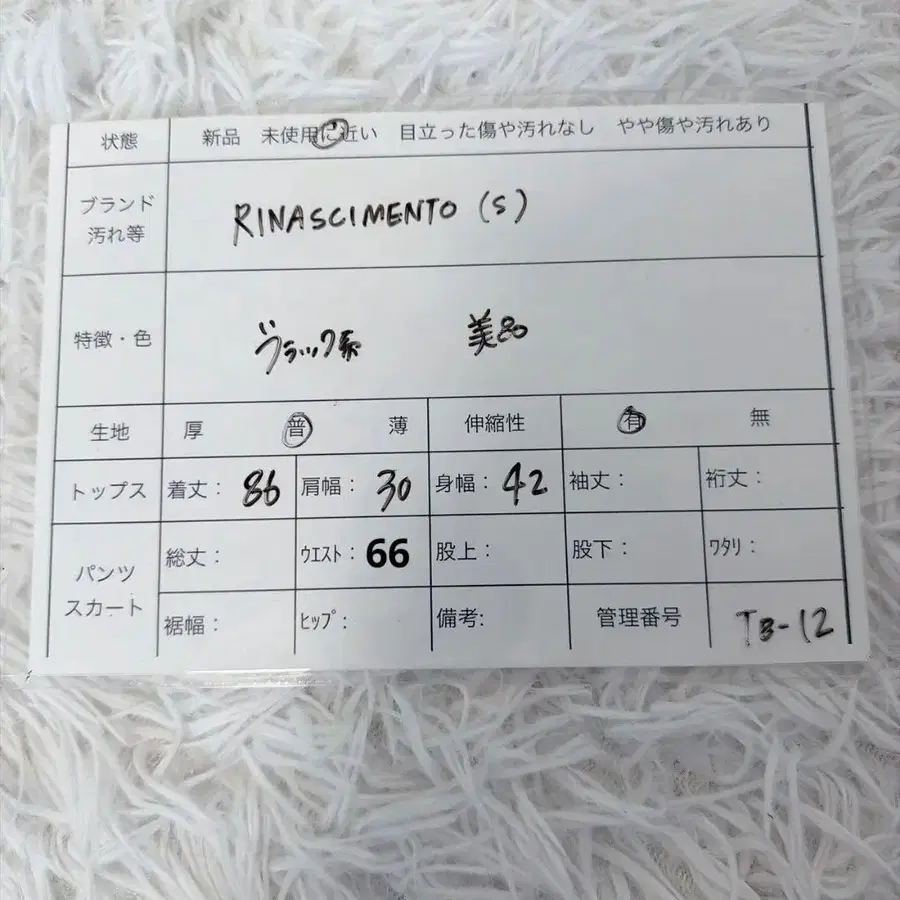 状態 新品 未使用に近い 目立った傷や汚れなし やや傷や汚れあり
ブランド
汚れ等
RINASCIMENTO (S)
特徴・色 ブラック系 美品
生地 厚 普 薄 伸縮性 有 無
トップス 着丈: 86 肩幅: 30 身幅: 42 袖丈: 裄丈:
パンツ
スカート
総丈: ウエスト: 66 股上: 股下: ワタリ:
裾幅: ヒップ: 備考: 管理番号 TB-12